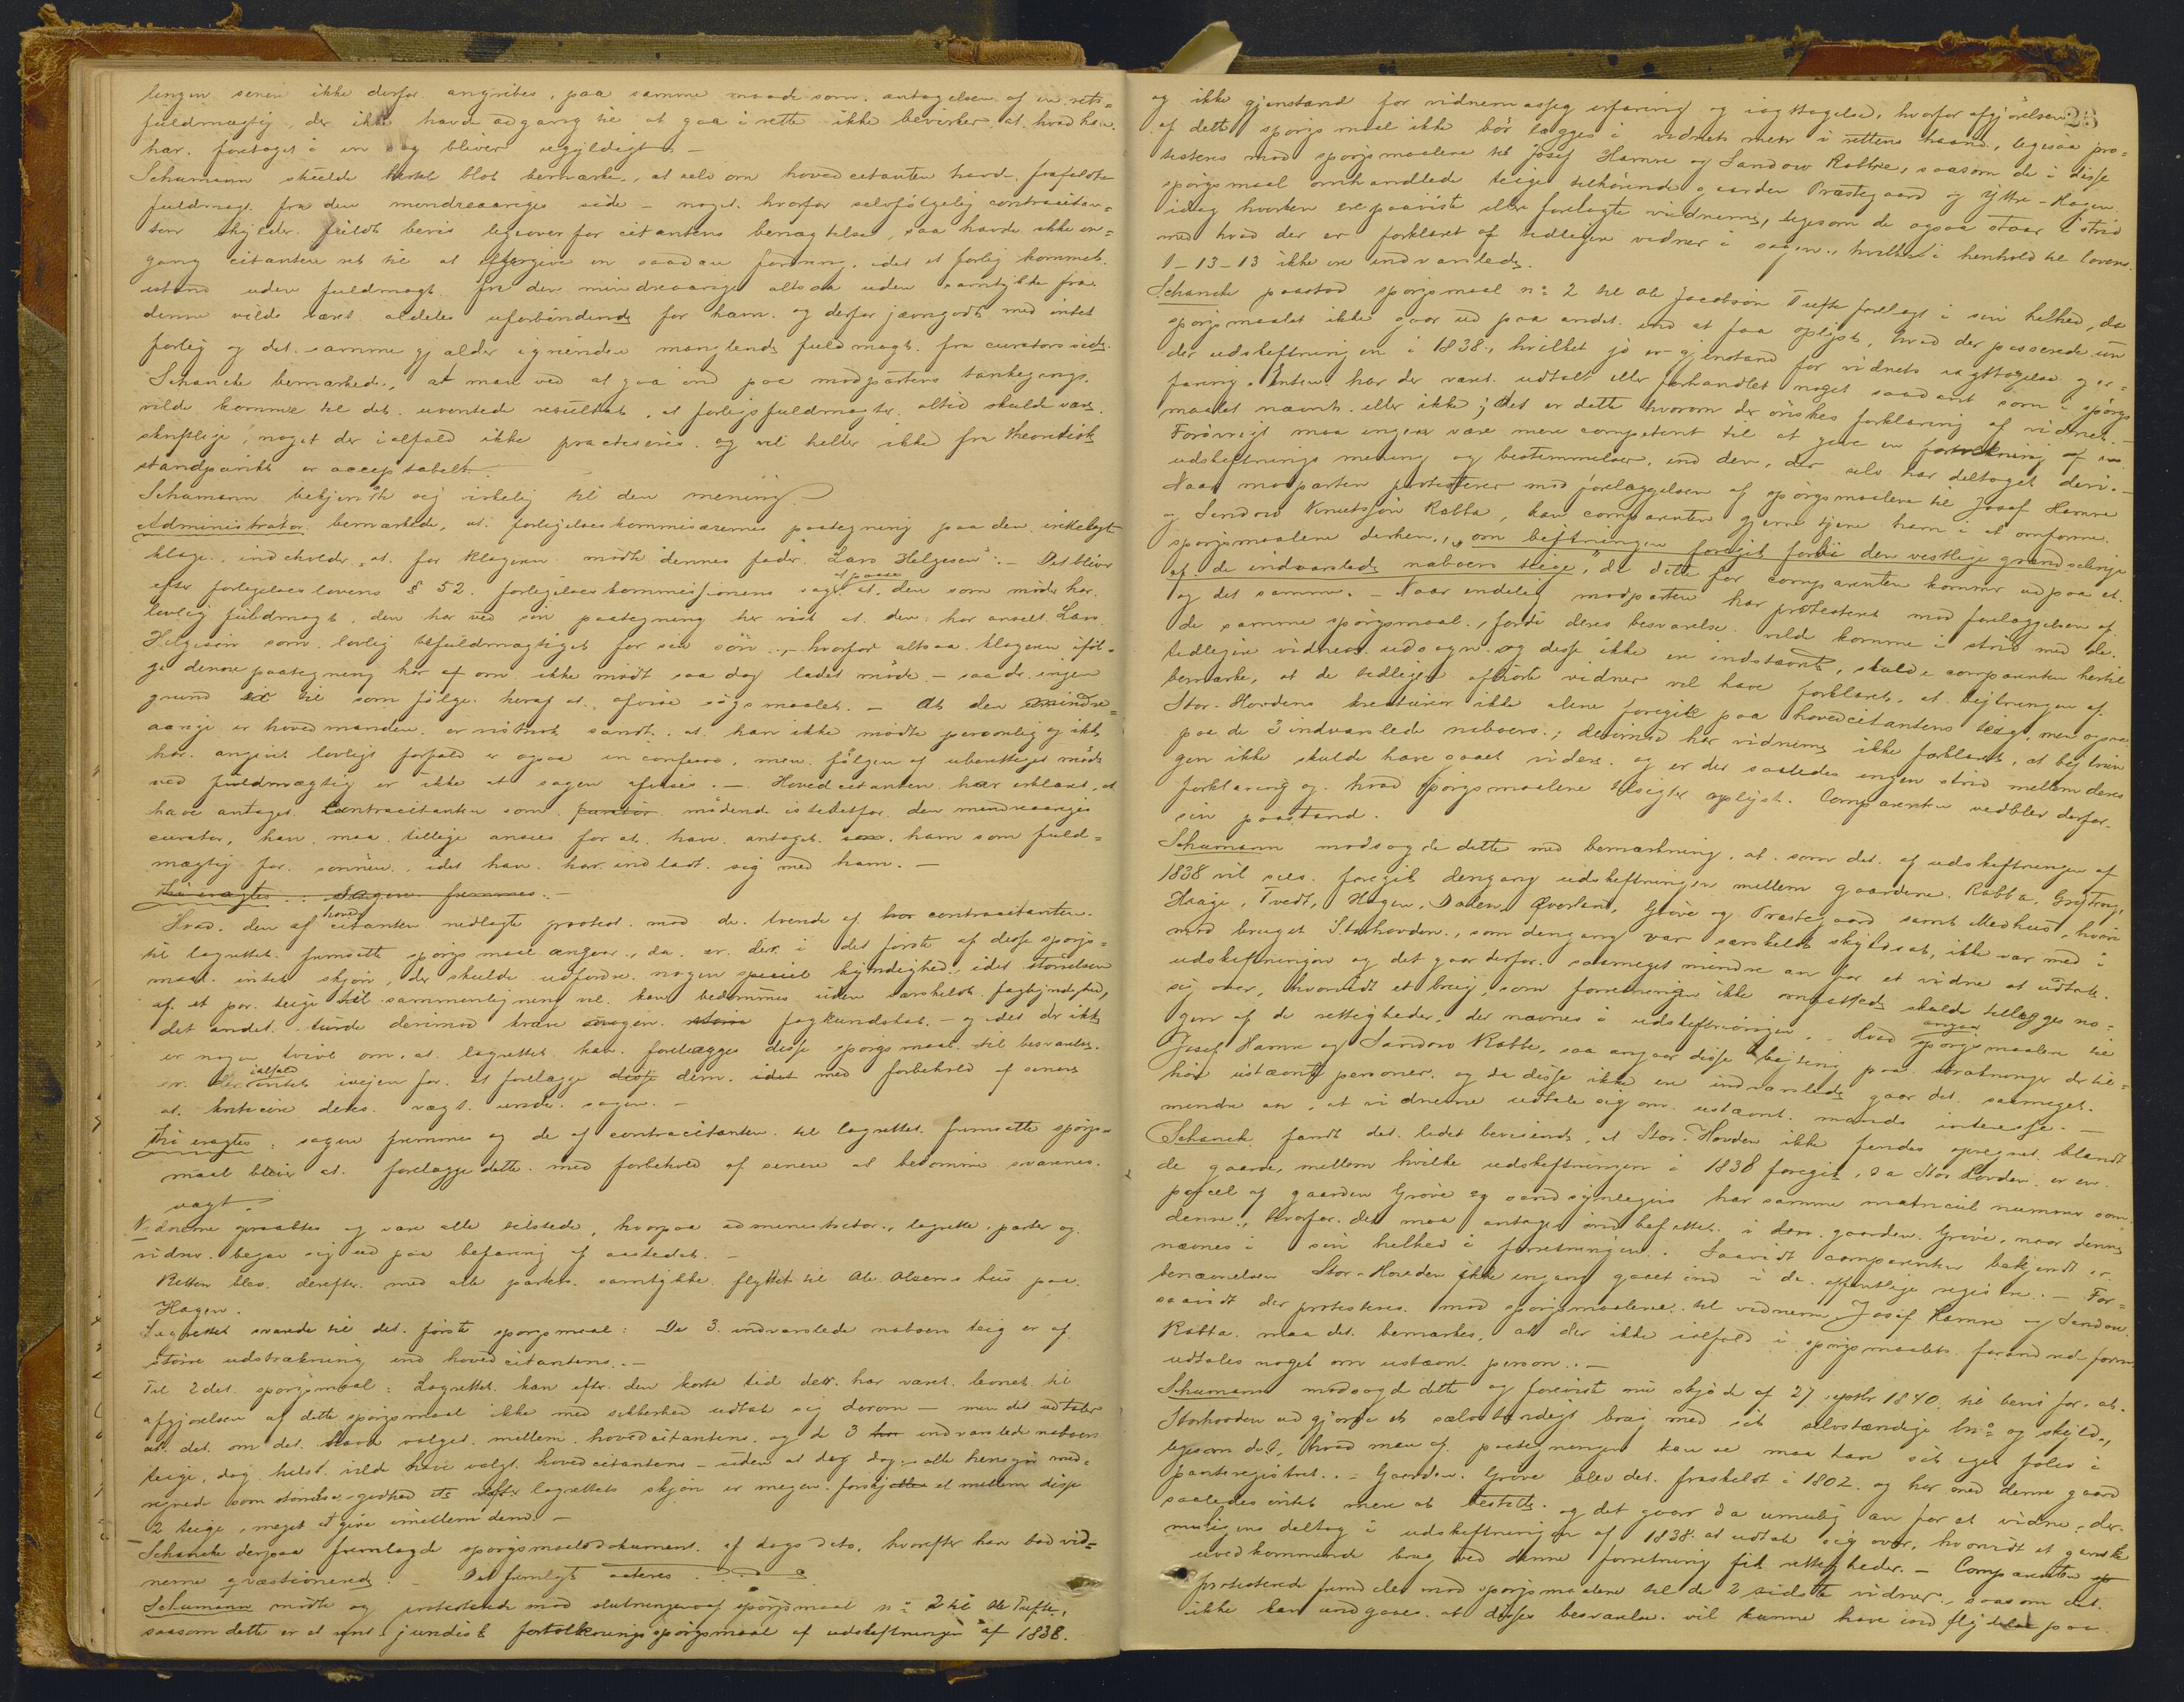 lingen senere ikke derfor angribes, paa samme maade som antagelsen af en rets=
fuldmægtig, der ikke havde adgang til at gaa i rette ikke bevirker at hvad han
har foretaget i en sag bliver ugyldigt. -
Schumann skulde blot bemærke, at selv om hovedcitanten havde frafaldt
fuldmagt fra den mindreaariges side - noget, hvorfor selvfølgelig contracitan=
ten skylder fuldt bevis ligeoverfor citantens benægtelse, saa havde ikke en=
gang citanten ret til at eftergive en saadan, idet et forlig kommet
istand uden fuldmagt fra den mindreaarige altsaa uden samtykke fra
denne vilde været aldeles uforbindende for ham og derfor jævngodt med intet
forlig og det samme gjælder manglende fuldmagt fra curators side.
Schancke bemærkede, at man ved at gaa ind paa modpartens tankegang
vilde komme til det uventede resultat, at forligsfuldmagter altid skulde være
skriftlige, noget der ialfald ikke practiseres og vel heller ikke fra theoretisk
standpunkt er acceptabelt. -
Schumann bekjendte sig virkelig til den mening. -
Administrator bemærkede, at forligelseskommissærernes paategning paa den indlagte
klage indeholder, at for klageren mødte dennes fader Lars Helgesen". - Det bliver
efter forligelseslovens § 52 forligelseskommissionens sag at paase at den som møder har
lovlig fuldmagt, den har ved sin paategning her vist at den har anseet Lars
Helgesøn som lovlig befuldmægtiget for sin søn, - hvorfor altsaa klageren iføl=
ge denne paategning her af om ikke mødt saa dog ladet møde. - saa der ingen
grund er til som følge heraf at afvise søgsmaalet. - At den mindre=
aarige er hovedmanden er vistnok sandt, at han ikke mødte personlig og ikke
har angivet lovligt forfald er ogsaa in confesso, men følgen af uberettiget møde
ved fuldmægtig er ikke at sagen afvises. - Hovedcitanten har erklæret, at
have antaget Contracitanten som curator mødende istedetfor den mindreaariges
curator, han maa tillige ansees for at have antaget ham som fuld=
mægtig for sønnen, idet han har indladt sig med ham. -
thi eragtes: Sagen fremmes. -
Hvad den af hovedcitanten nedlagte protest mod de tvende af contracitanten
til lagrettet fremsatte spørgsmaal angaar, da er der i det første af disse spørgs=
maal intet skjøn, der skulde udfordre nogen speciel kyndighed, idet størrelsen
af et par teige til sammenligning vel kan bedømmes uden særskildt fagkyndighed,
det andet turde derimod kræve nogen fagkundskab - og idet der ikke
er nogen tvivl om, at lagrettet kan forelægges disse spørgsmaal til besvarelse
er der ialfald intet ivejen for at forelægge disse dem idet med forbehold af senere
at kritisere deres vægt under sagen. -
Thi eragtes: sagen fremmes og de af contracitanten til lagrettet fremsatte spørgs=
maal bliver at forelægge dette med forbehold af senere at bedømme svarenes
vægt. -
Vidnerne paaraabtes og vare alle tilstede, hvorpaa administrator, lagrette, parter og
vidner begav sig ud paa befaring af aastedet. -
Retten blev derefter med alle parters samtykke flyttet til Ole Olsens hus paa
Hagen.
Lagrettet svarede til det første spørgsmaal: De 3 indvarslede naboers teig er af
større udstrækning end hovedcitantens. -
Til 2det spørgsmaal: Lagrettet kan efter den korte tid der har været levnet til
afgjørelsen af dette spørgsmaal ikke med sikkerhed udtale sig derom - men det udtaler
at det om det havde valget mellem hovedcitantens og de 3 indvarslede naboers
teige, dog helst vilde have valgt hovedcitantens - uden at dog dog - alle hensyn med=
regnede som størrelse, godhed etc efter lagrettets skjøn er megen forskjel mellem disse
2 teige, meget at give imellem dem. -
Schancke derpaa fremlagde spørgsmaalsdokument af dags dato, hvorefter han bad vid=
nerne qvæstionerede. - Det fremlagte acteres
Schumann mødte og protesterede mod slutningen af spørgsmaal n: 2 til Ole Tufte,
saasom dette er et rent juridisk fortolkningsspørgsmaal af udskiftningen af 1838.
23
og ikke gjenstand for vidnemæssig erfaring og iagttagelse, hvorfor afgjørelsen
af dette spørgsmaal ikke bør lægges i vidnets men i rettens haand, ligesaa pro=
testeres mod spørgsmaalene til Josef Hamre og Sandow Rabbe, saasom de i disse
spørgsmaal omhandlede teige tilhørende gaarden Præstegaard og Yttre-Hagen
idag hverken er paaviste eller forelagte vidnerne, ligesom de ogsaa staar i strid
med hvad der er forklaret af tidligere vidner i sagen, hvilket i henhold til lovens
1-13-13 ikke ere indvarslede.
Schancke paastod spørgsmaal n: 2 til Ole Jacobsøn Tufte forelagt i sin helhed, da
spørgsmaalet ikke gaar ud paa andet end at faa oplyst, hvad der passerede un
der udskiftningen i 1838, hvilket jo er gjenstand for vidnets iagttagelse og er=
faring. Enten har der været udtalt eller forhandlet noget saadant som i spørgs
maalet nævnt eller ikke; det er dette hvorom der ønskes forklaring af vidnet. -
Forøvrigt maa ingen være mere competent til at give en fortolkning af en
udskiftnings mening og bestemmelser, end den, der selv har deltaget deri. -
Naar modparten protesterer mod forelæggelsen af spørgsmaalene til Josef Hamre
og Sandow Knutsøn Rabba, kan comparenten gjerne tjene ham i at omforme
spørgsmaalene derhen, "om bejtningen foregik forbi den vestlige grændselinje
af de indvarslede naboers teige", da dette for comparenten kommer ud paa et
og det samme. - Naar endelig modparten har protesteret mod forelæggelsen af
de samme spørgsmaal, fordi deres besvarelse vilde komme i strid med de
tidligere vidners udsagn og disse ikke ere indstævnte, skulde comparenten hertil
bemærke, at de tidligere afhørte vidner vel have forklaret, at bejtningen af
Stor-Hovdens kreaturer ikke alene foregik paa hovedcitantens teig, men ogsaa
paa de 3 indvarslede naboers; derimod har vidnerne ikke forklaret, at bejtnin
gen ikke skulde have gaaet videre og er der saaledes ingen strid mellem deres
forklaring og hvad spørgsmaalene tilsigter oplyst. Comparenten vedblev derfor
sin paastand.
Schumann modsagde dette med bemærkning, at som det af udskiftningen af
1838 vil sees foregik dengang udskiftningen mellem gaardene Rabba,
Haage, Tvedt, Hagen, Dalen, Øverland, Grøve og Præstegaard samt Medhus, hvori
mod bruget Storhovden, som dengang var særskildt skyldsat, ikke var med i
udskiftningen og det gaar derfor saameget mindre an for et vidne at udtale
sig over, hvorvidt et brug, som forretningen ikke omfattede skulde tillægges no=
gen af de rettigheder, der nævnes i udskiftningen. Hvad angaar spørgsmaalene til
Josef Hamre og Sandow Rabbe, saa angaar disse bejting paa strækninger der til=
hør ustævnte personer og da disse ikke ere indvarslede gaar det saameget
mindre an, at vidnerne udtale sig om ustævnt mands interesse. -
Schancke fandt det lidet bevisende, at Stor-Hovden ikke findes opregnet blandt
de gaarde, mellem hvilke udskiftningen i 1838 foregik, da Stor Hovden er en
parcel af gaarden Grøve og sandsynligvis har samme matricul nummer som
denne, hvorfor det maa antages indbefattet i gaarden Grøve, naar denne
nævnes i sin helhed i forretningen. Saavidt comparenten bekjendt er
benævnelsen Stor-Hovden ikke engang gaaet ind i de offentlige registre. - For=
saavidt der protesteres mod spørgsmaalene til vidnerne Josef Hamre og Sandow
Rabba maa det bemærkes, at der ikke ialfald i spørgsmaalets forandrede form
udtales noget om ustævnt person. -
Schumann modsagde dette og foreviste nu skjøde af 27 septbr 1840 til bevis for at
Storhovden udgjorde et selvstændigt brug med sit selvstændige No og skyld,
ligesom det, hvad man af paategningen kan se maa have sit eget folio i
panteregistret. - Gaarden Grøve blev det fraskilt i 1802 og har med denne gaard
saaledes intet mere at bestille og det gaar da umulig an for at vidne, der
muligens deltog i udskiftningen af 1838 at udtale sig over, hvorvidt et ganske
uvedkommende brug ved denne forretning fik rettigheder. - Comparenten
protesterede fremdeles mod spørgsmaalene til de 2 sidste vidner, saasom det
ikke kan undgaaes at disses besvarelse vil kunne have indflydelse paa